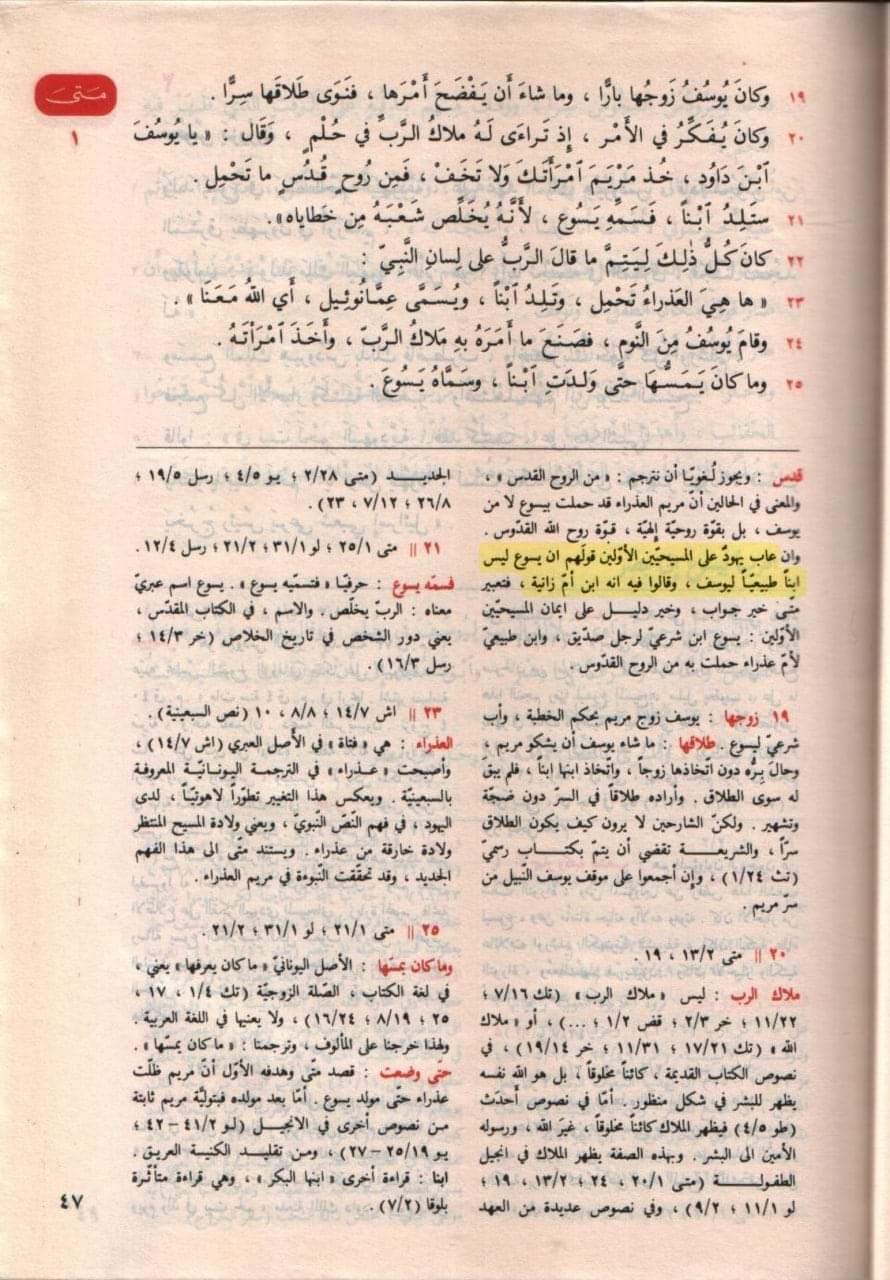 متى
١
١٩ وكانَ يُوسُفُ زَوجُها بارًّا ، وما شاءَ أَن يَفْضَحَ أَمْرَها ، فَنَوَى طَلاقَها سِرًّا .
٢٠ وكانَ يُفَكِّرُ في الأَمْرِ ، إِذ تَراءَى لَهُ مَلاكُ الرَّبِّ في حُلْمٍ ، وَقَال : « يا يُوسُفَ
ٱبْنَ دَاوُد ، خُذ مَرْيَمَ ٱمْرَأَتَكَ وَلا تَخَفْ ، فَمِن رُوحِ قُدُسٍ ما تَحْمِل .
٢١ ستَلِدُ ٱبْناً ، فَسَمِّهِ يَسُوع ، لأَنَّهُ يُخَلِّص شَعْبَهُ مِن خَطاياه » .
٢٢ كانَ كُلُّ ذٰلِكَ لِيَتِمَّ ما قالَ الرَّبُّ على لِسانِ النَّبِيّ :
٢٣ « ها هِيَ العَذراءُ تَحْمِل ، وتَلِدُ ٱبْناً ، ويُسَمَّى عِمَّانُوئِيل ، أَي اللهُ مَعَنَا » .
٢٤ وقامَ يُوسُفُ مِنَ النَّوم ، فصَنَعَ ما أَمَرَهُ بِهِ مَلاكُ الرَّبّ ، وأَخَذَ ٱمْرَأَتَهُ .
٢٥ وما كانَ يَمَسُّهَا حتَّى وَلَدَتِ ٱبْناً ، وسَمَّاهُ يَسُوعَ .
قدس : ويجوز لُغويّا أن نترجم : « من الروح القدس » ،
والمعنى في الحالين أنّ مريم العذراء قد حملت بيسوع لا من
يوسف ، بل بقوة روحيّة إلهيّة ، قوّة روح الله القدّوس .
وإن عاب يهودٌ على المسيحيّين الأوّلين قولَهم ان يسوع ليس
ابناً طبيعيّاً ليوسف ، وقالوا فيه انه ابن أمّ زانية ، فتعبير
متّى خير جواب ، وخير دليل على ايمان المسيحيّين
الأوّلين : يسوع ابن شرعيّ لرجل صدّيق ، وابن طبيعيّ
لأمّ عذراء حملت به من الروح القدّوس .
١٩ زوجها : يوسف زوج مريم بحكم الخطبة ، وأب
شرعيّ ليسوع . طلاقها : ما شاء يوسف أن يشكو مريم ،
وحالَ بِرُّه دون اتّخاذها زوجاً ، واتّخاذ ابنها ابناً ، فلم يبقَ
له سوى الطلاق . وأراده طلاقاً في السرّ دون ضجّة
وتشهير . ولكنّ الشارحين لا يرون كيف يكون الطلاق
سرّاً ، والشريعة تقضي أن يتمّ بكتاب رسميّ
(تث ١/٢٤) ، وإن أجمعوا على موقف يوسف النّبيل من
سرّ مريم .
٢٠ || متى ١٣/٢ ، ١٩ .
ملاك الرب : ليس « ملاك الرب » (تك ٧/١٦ ؛
١١/٢٢ ؛ خر ٢/٣ ؛ قض ١/٢ ؛ ...) ، أو « ملاك
الله » (تك ١٧/٢١ ؛ ١١/٣١ ؛ خر ١٩/١٤) ، في
نصوص الكتاب القديمة ، كائناً مخلوقاً ، بل هو الله نفسه
يظهر للبشر في شكل منظور . أمّا في نصوص أحدث
(طو ٤/٥) فيظهر الملاك كائناً مخلوقاً ، غيرَ الله ، ورسوله
الأمين الى البشر . وبهذه الصفة يظهر الملاك في انجيل
الطفولة (متى ٢٠/١ ، ٢٤ ، ١٣/٢ ، ١٩ ؛
لو ١١/١ ؛ ٩/٢) ، وفي نصوص عديدة من العهد
الجديد (متى ٢/٢٨ ؛ يو ٤/٥ ؛ رسل ١٩/٥ ؛
٢٦/٨ ؛ ٧/١٢ ، ٢٣) .
٢١ || متى ٢٥/١ ؛ لو ٣١/١ ؛ ٢١/٢ ؛ رسل ١٢/٤ .
فسمّه يسوع : حرفيّا « فتسمّيه يسوع » . يسوع اسم عبريّ
معناه : الربّ يخلّص . والاسم ، في الكتاب المقدّس ،
يعني دور الشخص في تاريخ الخلاص (خر ١٤/٣ ؛
رسل ١٦/٣) .
٢٣ || اش ١٤/٧ ؛ ٨/٨ ، ١٠ (نص السبعينية) .
العذراء : هي « فتاة » في الأصل العبري (اش ١٤/٧) ،
وأصبحت « عذراء » في الترجمة اليونانيّة المعروفة
بالسبعينيّة . ويعكس هذا التغيير تطوّراً لاهوتيّاً ، لدى
اليهود ، في فهم النّصّ النّبويّ ، ويعني ولادة المسيح المنتظر
ولادة خارقة من عذراء . ويستند متّى الى هذا الفهم
الجديد ، وقد تحقّقت النّبوءة في مريم العذراء .
٢٥ || متى ٢١/١ ؛ لو ٣١/١ ؛ ٢١/٢ .
وما كان يمسّها : الأصل اليونانيّ « ما كان يعرفها » يعني ،
في لغة الكتاب ، الصّلة الزوجيّة (تك ١/٤ ، ١٧ ،
٢٥ ؛ ٨/١٩ ؛ ١٦/٢٤) ، ولا يعنيها في اللغة العربية .
ولهذا خرجنا على المألوف ، وترجمنا : « ما كان يمسّها » .
حتى وضعت : قصد متّى وهدفه الأوّل أنّ مريم ظلّت
عذراء حتّى مولد يسوع . أمّا بعد مولده فبتوليّة مريم ثابتة
من نصوص أخرى في الانجيل (لو ٤١/٢ – ٤٢ ؛
يو ٢٥/١٩ – ٢٧) ، ومن تقليد الكنيسة العريق .
ابنا : قراءة أخرى « ابنها البكر » ، وهي قراءة متأثّرة
بلوقا (٧/٢) .
٤٧